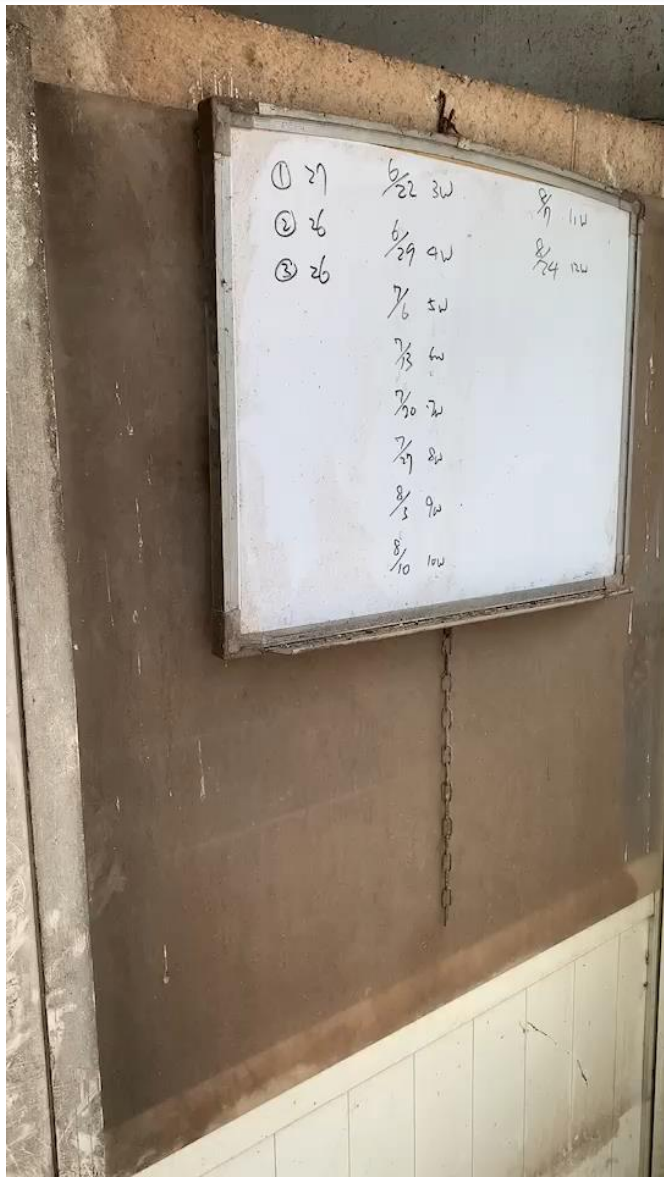 ① 27
② 26
③ 26
6/22 3W
6/29 4W
7/6 5W
7/13 6W
7/20 7W
7/27 8W
8/3 9W
8/10 10W
8/7 11W
8/24 12W